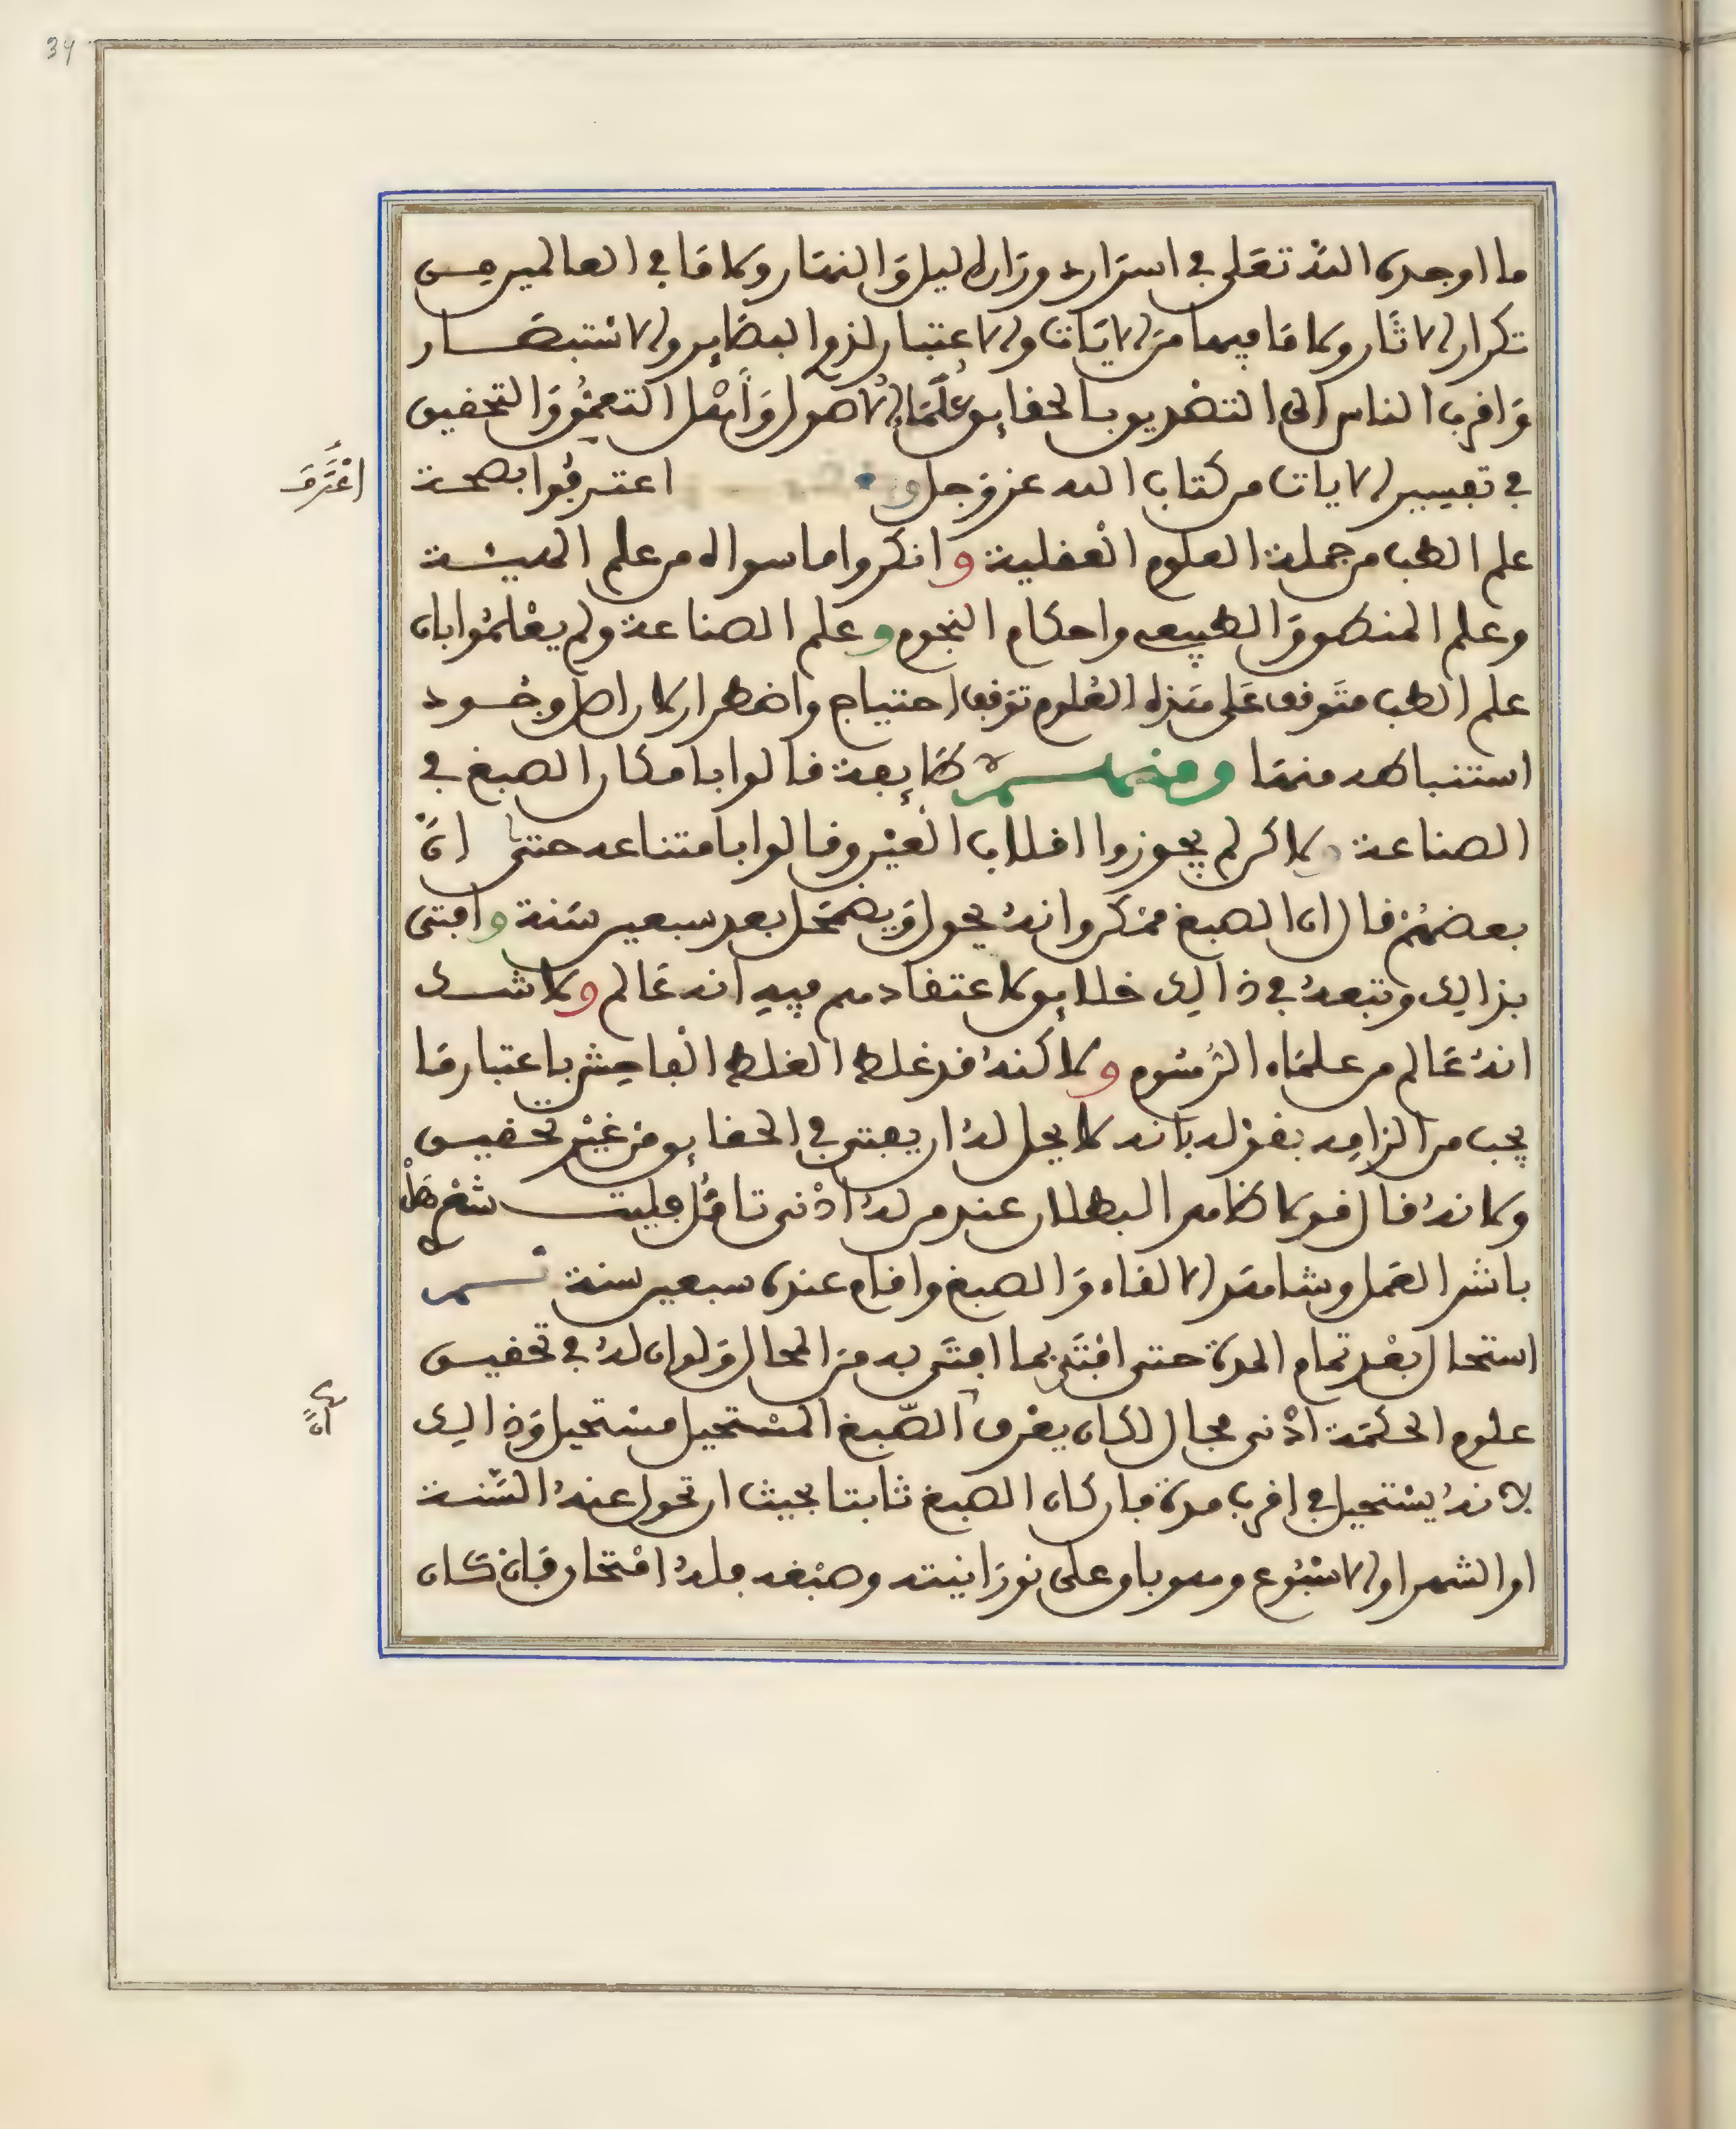 34
ما اوجده الله تعلى في اسراره ودار اليل والنهار وكا ما في العالمين من
تكرار الاثار وكا ما فيها من الايات والاعتبار لذوا البصاير والاستبصار
واقرب الناس الى التصديق بالحقايق علماء الاصول واهل التعمق والتحقيق
في تفسير الايات من كتاب الله عز وجل اعترفوا بصحة
اعترف
علم الطب من جملة العلوم العقلية وانكروا ما سواه من علم الهيئة
وعلم المنطق والطبيعي واحكام النجوم وعلم الصناعة ولم يعلموا بان
علم الطب متوقف على هذه العلوم توقف احتياج واضطرار كان اصل وجود
استنباطه منها ومنهم طايفة قالوا بامكان الصبغ في
الصناعة ولاكن لم يجوزوا اقلاب العين وقالوا بامتناعه حتى ان
بعضهم قال ان الصبغ ممكن وانه يحول ويضمحل بعد سبعين سنة وافتى
بذالك وتبعه في ذالك خلايق لاعتقادهم فيه انه عالم ولا شك
انه عالم من علماء الرسوم ولاكنه قد غلط الغلط الفاحش باعتبار ما
يجب من الزامه بقوله بانه لا يحل له ان يفتي في الحقايق من غير تحقيق
ولانه قال قولا ظاهر البطلان عند من له ادنى تامل فليت شعري هل
باشر العمل وشاهد الالقاء والصبغ واقام عنده سبعين سنة ثم
استحال بعد تمام المدة حتى افتى بما افتى به من المحال ولو ان له في تحقيق
علوم الحكمة ادنى مجال لكان يعرف الصبغ المستحيل مستحيل وذالك
ان
لانه يستحيل في اقرب مدة فان كان الصبغ ثابتا بحيث ان تحول عنه السنة
او الشهر او الاسبوع وهو باو على نورانيته وصبغه فله افتخار فان كان